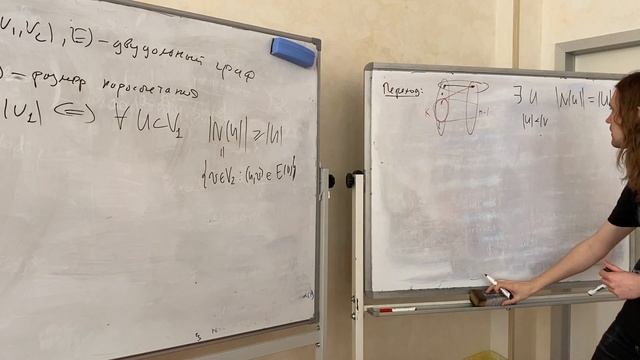 V₁,V₂), E) – двудольный граф
) = размер паросочетания
|V₁| ⇔ ∀ U ⊂ V₁ |N(U)| ≥ |U|
{v∈V₂ : (u,v) ∈ E(G)}
Переход: ∃ U |N(U)| = |U
|U| < |V
k n-1